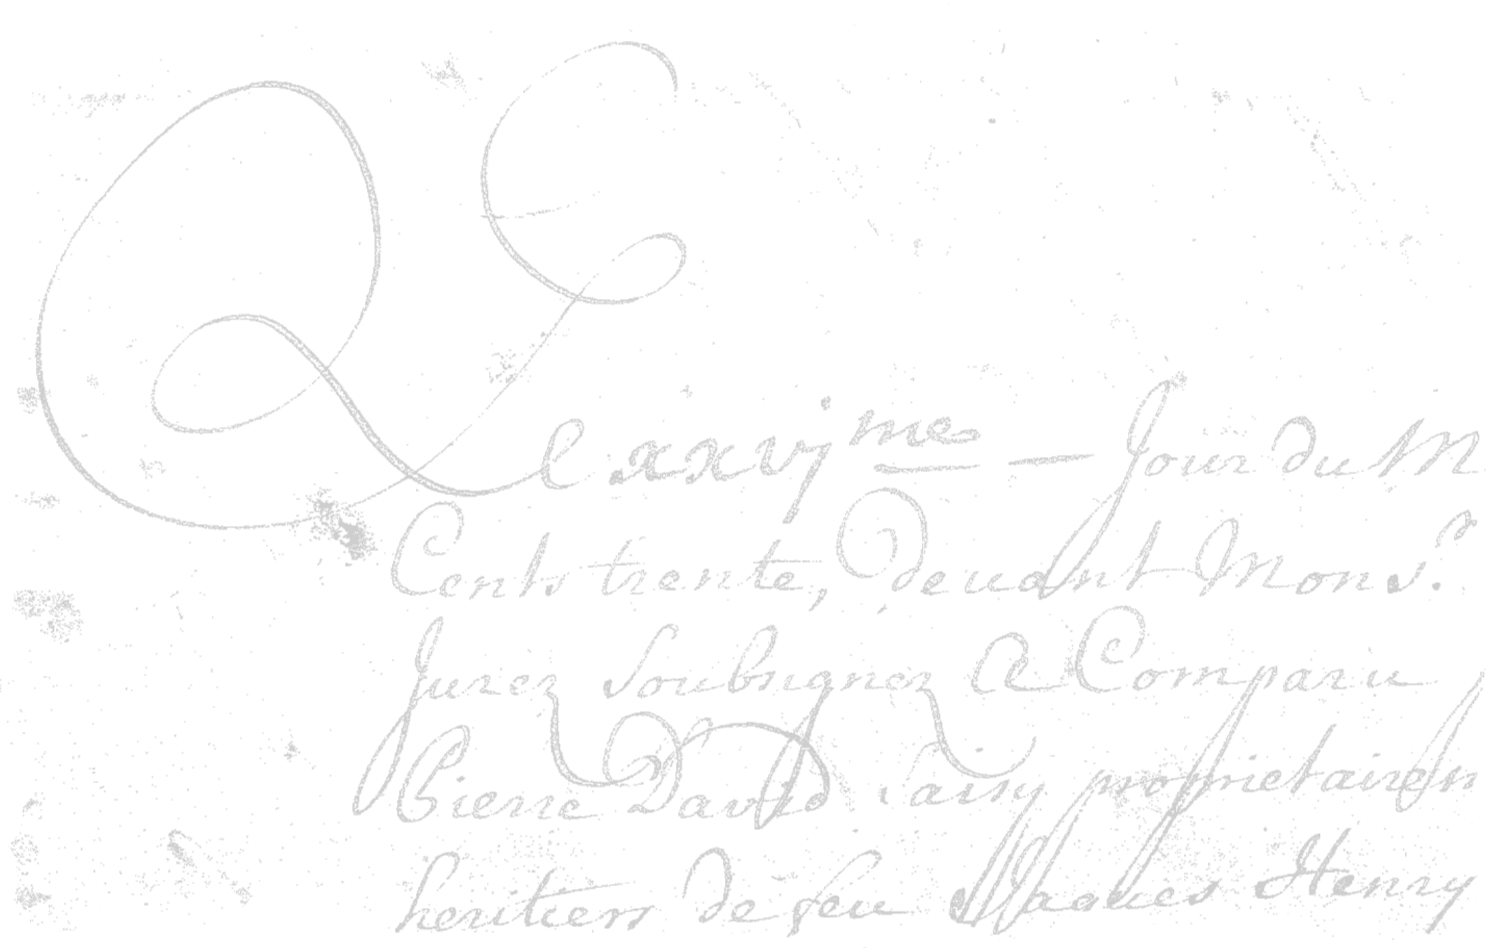 Le xxvj me — Jour du M
Cents trente, devant Mons.r
Jurez Soubsignez A Comparu
Pierre David proprietaires
heritiers de feu Jaques Henry